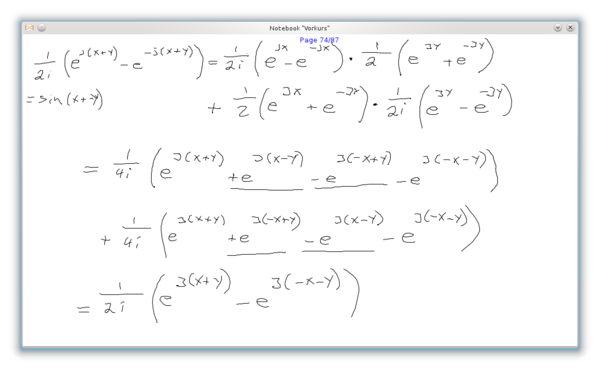 Notebook "Vorkurs"
Page 74/87
1/2i (e^j(x+y) - e^-j(x+y)) = 1/2i (e^jx - e^-jx) · 1/2 (e^jy + e^-jy)
= sin(x+y) + 1/2 (e^jx + e^-jx) · 1/2i (e^jy - e^-jy)
= 1/4i (e^j(x+y) + e^j(x-y) - e^j(-x+y) - e^j(-x-y))
+ 1/4i (e^j(x+y) + e^j(-x+y) - e^j(x-y) - e^j(-x-y))
= 1/2i (e^j(x+y) - e^j(-x-y))